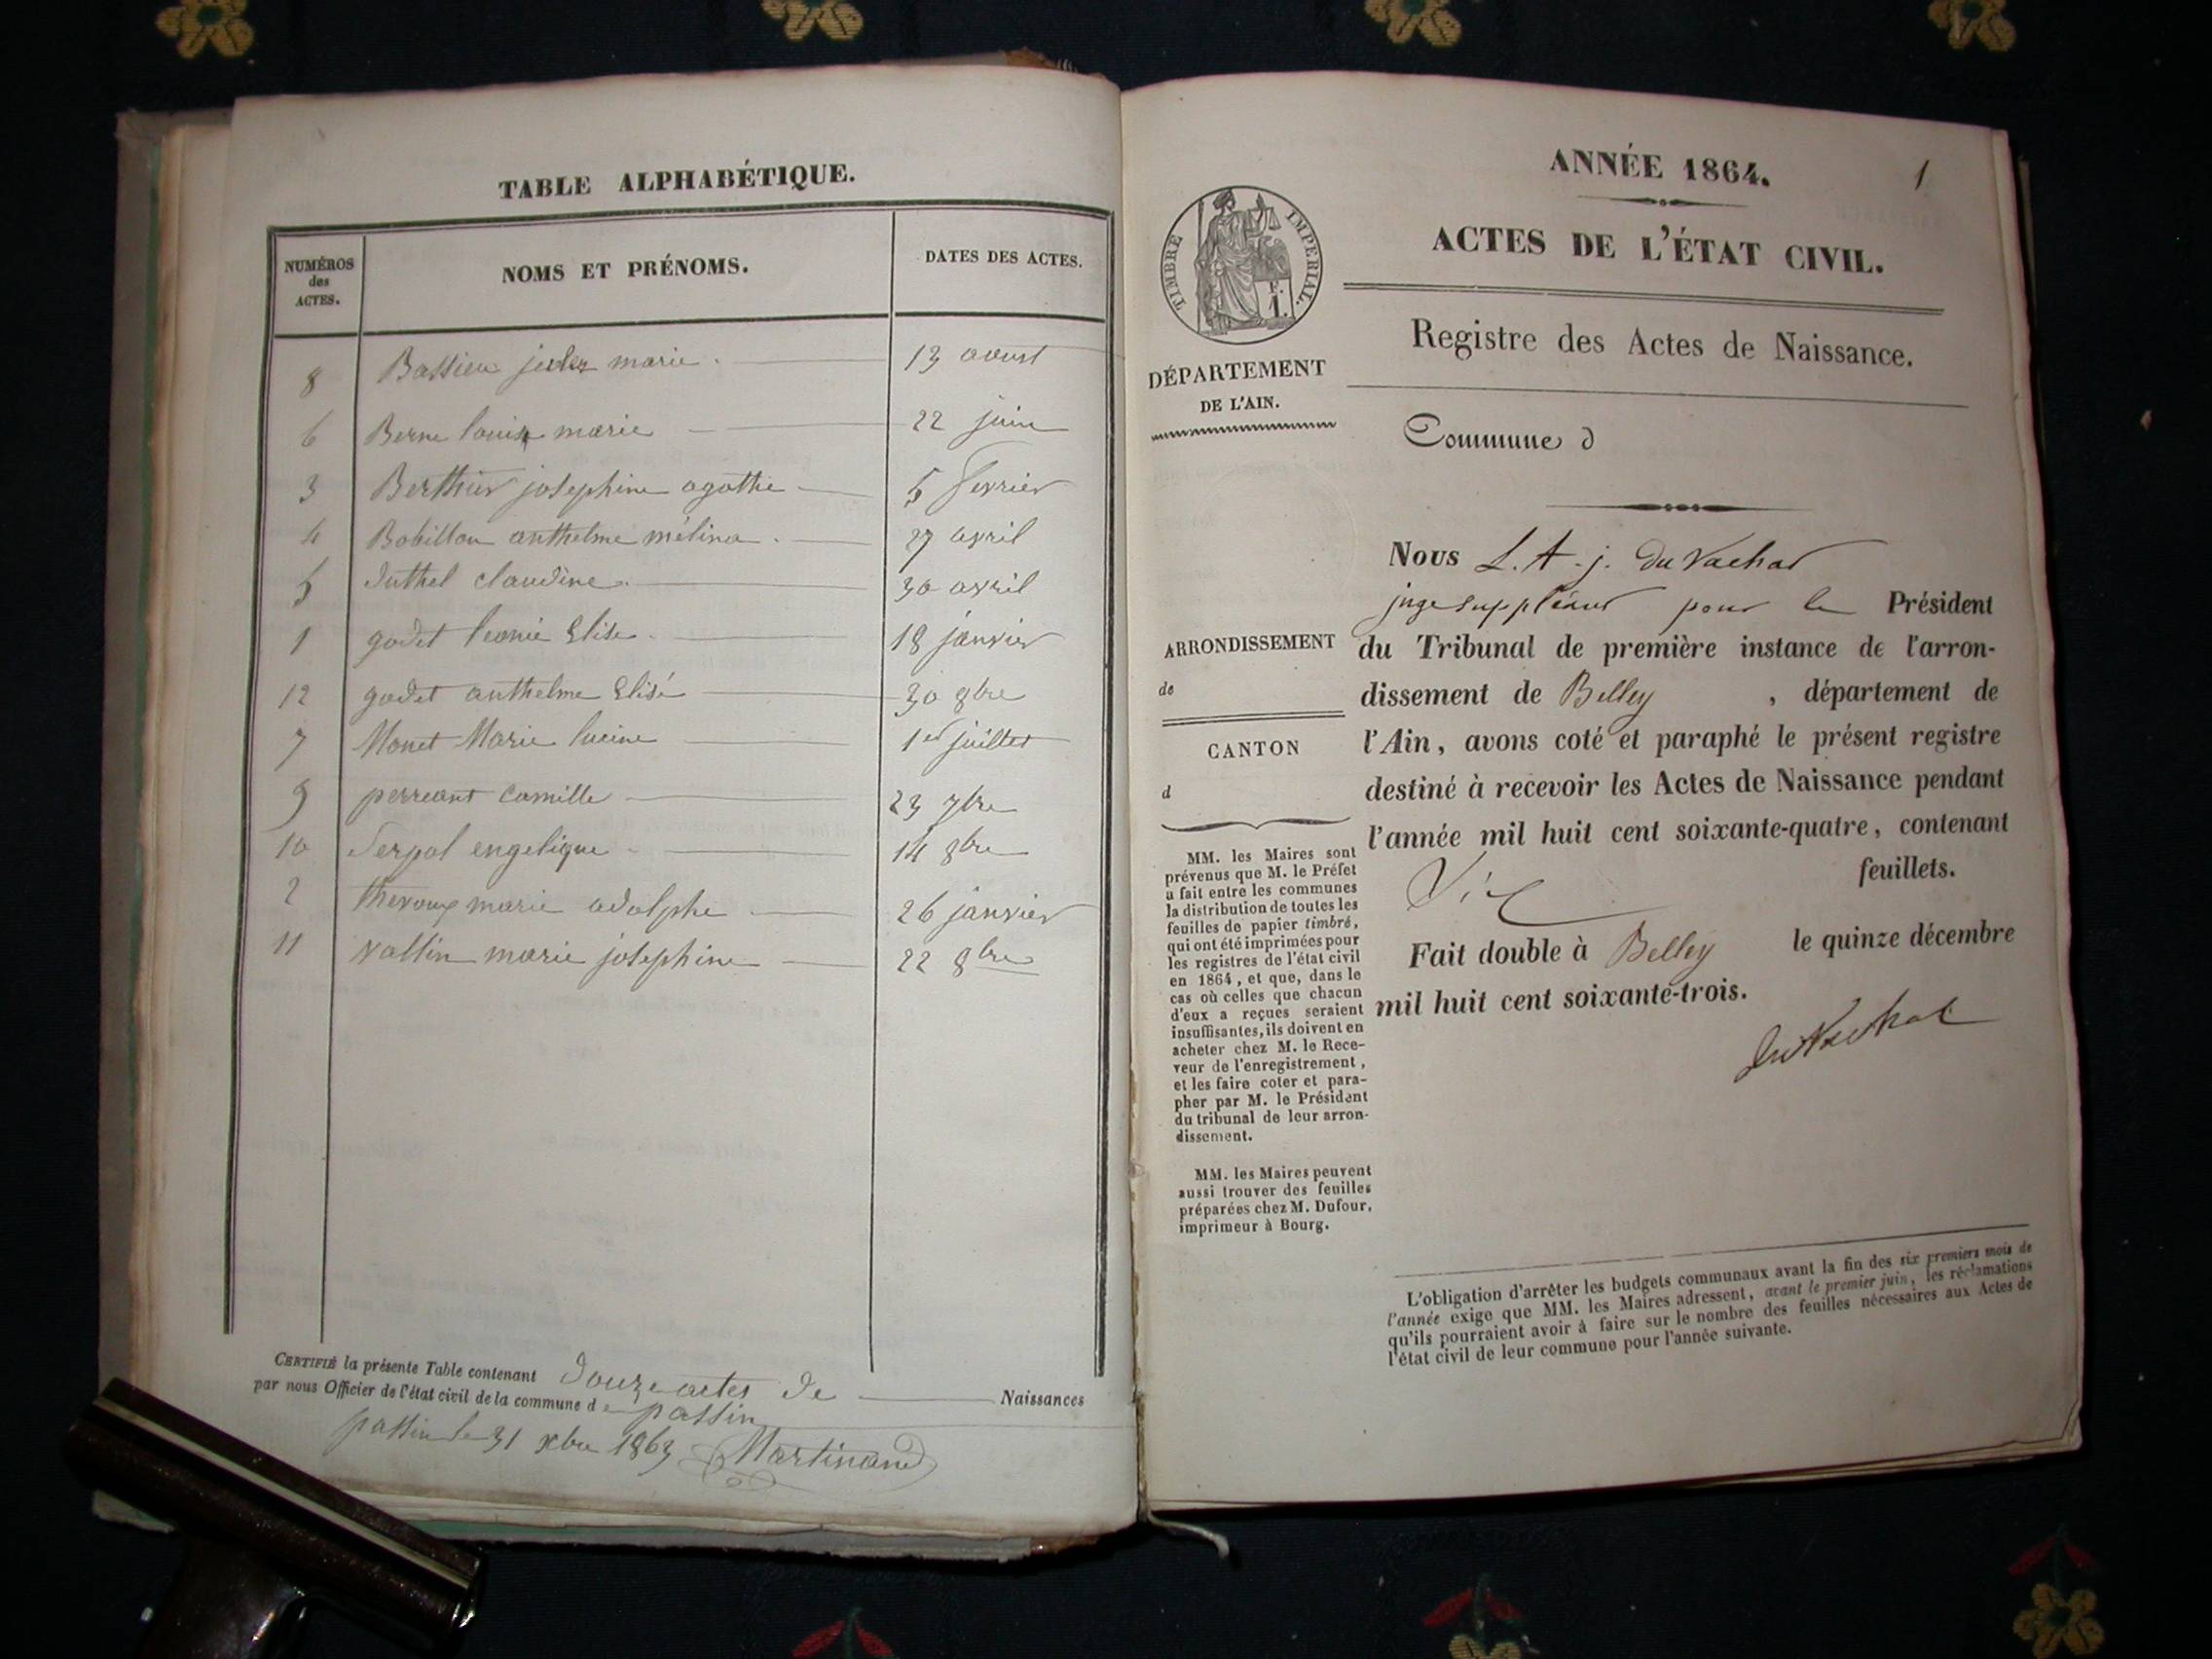 TABLE ALPHABÉTIQUE.
NUMÉROS
des
ACTES.
NOMS ET PRÉNOMS.
DATES DES ACTES.
8 Bassieu jules marie 13 aoust
6 Berne louis marie 22 juin
3 Berthier josephine agathe 5 fevrier
4 Bobillon anthelme mélina 27 avril
5 Juthel claudine 30 avril
1 godet leonie Elise 18 janvier
12 godet anthelme Elisé 30 8bre
7 Monet Marie lucine 1er juillet
9 perreant Camille 23 7bre
10 Serpol engelique 14 8bre
2 thevoux marie adolphe 26 janvier
11 vallin marie josephine 22 8bre
CERTIFIÉ la présente Table contenant Douze actes de Naissances
par nous Officier de l'état civil de la commune de passin
passin le 31 xbre 1863 Martinand
1
ANNÉE 1864.
ACTES DE L'ÉTAT CIVIL.
Registre des Actes de Naissance.
TIMBRE IMPERIAL.
F.
1.
DÉPARTEMENT
DE L'AIN.
Commune d
ARRONDISSEMENT
de
CANTON
d
Nous L. A. j. Du Vachat
juge suppléant pour le Président
du Tribunal de première instance de l'arron-
dissement de Belley, département de
l'Ain, avons coté et paraphé le présent registre
destiné à recevoir les Actes de Naissance pendant
l'année mil huit cent soixante-quatre, contenant
Six feuillets.
Fait double à Belley le quinze décembre
mil huit cent soixante-trois.
Du Vachat
MM. les Maires sont
prévenus que M. le Préfet
a fait entre les communes
la distribution de toutes les
feuilles de papier timbré,
qui ont été imprimées pour
les registres de l'état civil
en 1864, et que, dans le
cas où celles que chacun
d'eux a reçues seraient
insuffisantes, ils doivent en
acheter chez M. le Rece-
veur de l'enregistrement,
et les faire coter et para-
pher par M. le Président
du tribunal de leur arron-
dissement.
MM. les Maires peuvent
aussi trouver des feuilles
préparées chez M. Dufour,
imprimeur à Bourg.
L'obligation d'arrêter les budgets communaux avant la fin des six premiers mois de
l'année exige que MM. les Maires adressent, avant le premier juin, les réclamations
qu'ils pourraient avoir à faire sur le nombre des feuilles nécessaires aux Actes de
l'état civil de leur commune pour l'année suivante.